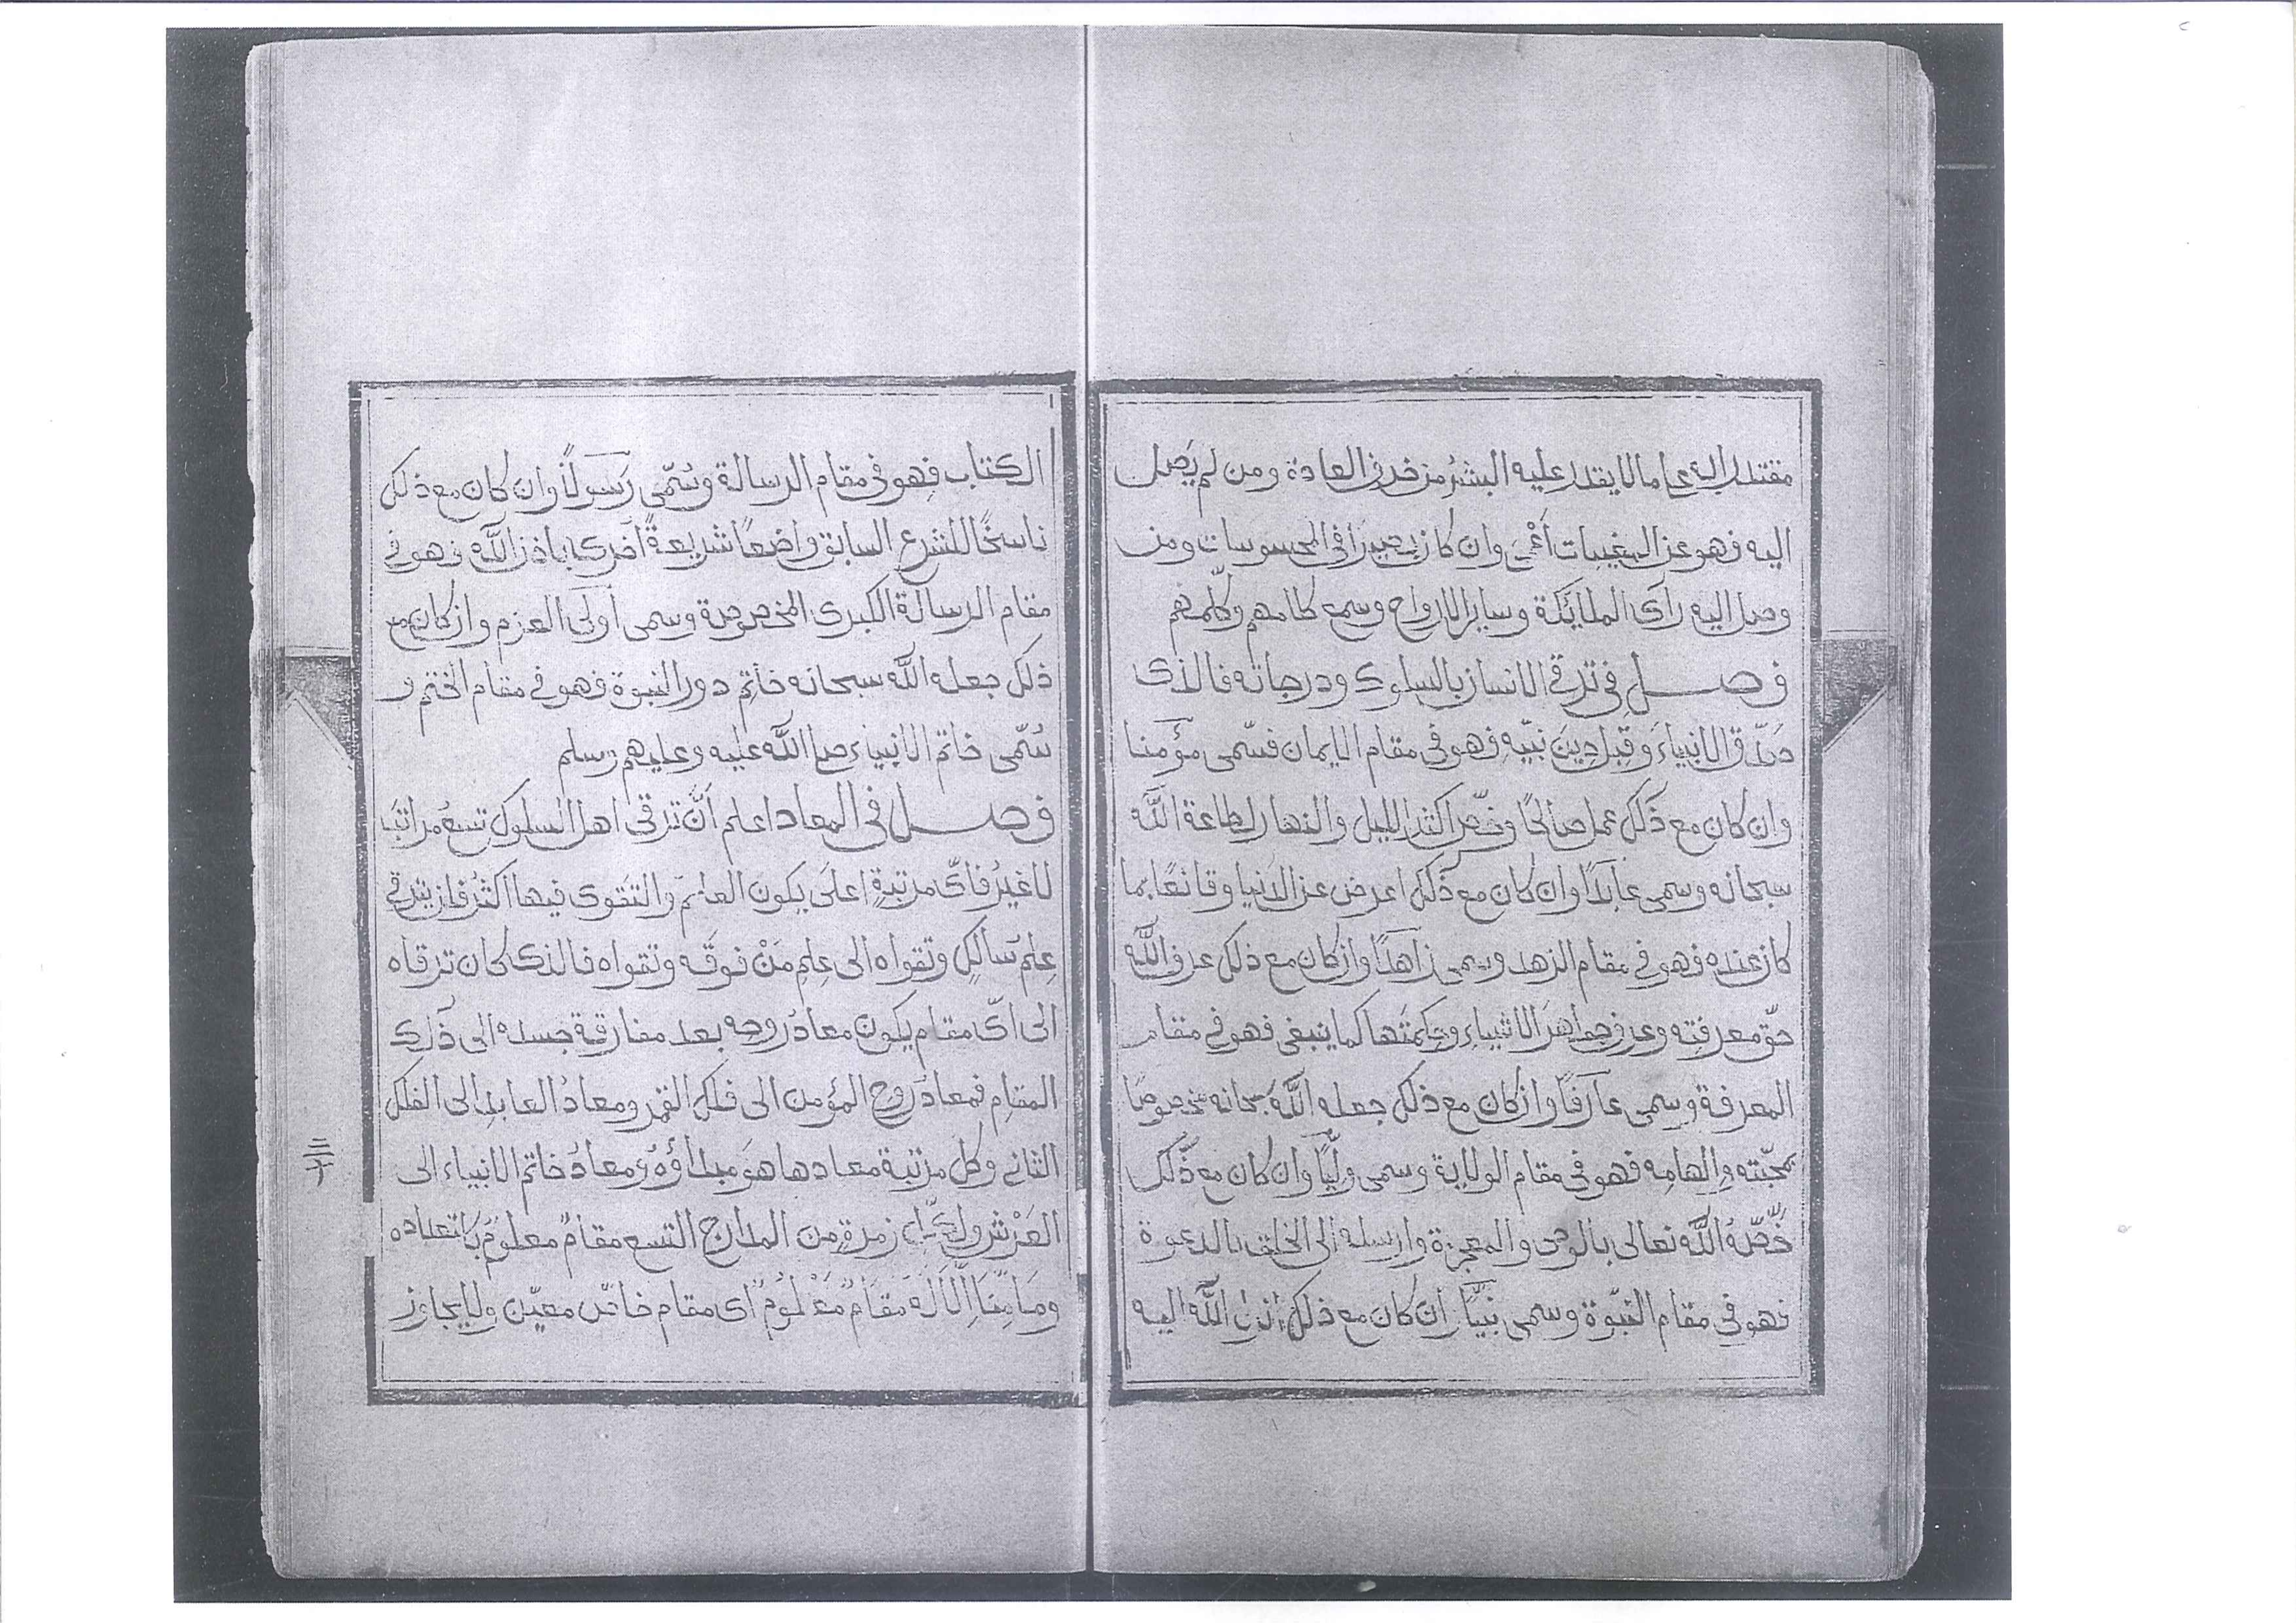 مقتدرا به على ما لا يقدر عليه البشر من خرق العادة ومن لم يصل
اليه فهو عن المغيبات أعمى وان كان بصيرا في المحسوسات ومن
وصل اليه رأى الملائكة وساير الارواح وسمع كلامهم وكلّمهم
فصل في ترقي الانسان بالسلوك ودرجاته فالذى
صدّق الانبياءَ وقبل دينَ نبيّه فهو في مقام الايمان فسمّى مؤمنا
وان كان مع ذلك عمل صالحًا وخصّ اكثر الليل والنهار لطاعة الله
سبحانه وسمى عابدًا وان كان مع ذلك اعرض عن الدنيا وقانعًا بما
كان عنده فهو في مقام الزهد وسمى زاهدًا وان كان مع ذلك عرف الله
حقّ معرفته وعرف جواهرَ الاشياءِ وحكمتَها كما ينبغى فهو في مقام
المعرفة وسمى عارفًا وان كان مع ذلك جعله الله سبحانه مخصوصًا
بمحبّته والهامِه فهو في مقام الولاية وسمى وليًّا وان كان مع ذلك
خصّهُ الله تعالى بالوحى والمعجزة وارسله الى الخلق بالدعوة
فهو في مقام النبوّة وسمى نبيًّا وان كان مع ذلك انزل الله اليه
الكتاب فهو في مقام الرسالة وسُمّى رَسولاً وان كان مع ذلك
ناسخًا للشرع السابق واضعًا شريعةً أخرى باذن الله فهو في
مقام الرسالة الكبرى المخصوصة وسمى أولى العزم وان كان مع
ذلك جعله الله سبحانه خاتم دور النبوة فهو في مقام الختم و
سُمّى خاتم الانبياء صلى الله عليه وعليهم وسلم
فصل في المعاد اعلم أنّ ترقى اهل السلوك تسعُ مراتب
لا غيرُ فاىّ مرتبةٍ اعلَى يكون العلم والتقوى فيها اكثرُ فان يترقى
عِلمُ سالكٍ وتقواه الى عِلمِ مَنْ فوقَه وتقواه فالذى كان ترقاه
الى اىّ مقام يكون معادُ روحه بعد مفارقة جسده الى ذلك
المقامِ فمعادُ روحِ المؤمن الى فلك القمر ومعادُ العابدِ الى الفلك
الثاني وكل مرتبة معادها هو مبداؤهُ ومعادُ خاتم الانبياء الى
العَرْشِ ولكلّ زمرةٍ من المدارج التسع مقامٌ معلومٌ لا تعداه
ومَا مِنَّا إِلَّا لَهُ مَقَامٌ مَعْلُومٌ اى مقام خاصّ معيّن ولا يجاوز